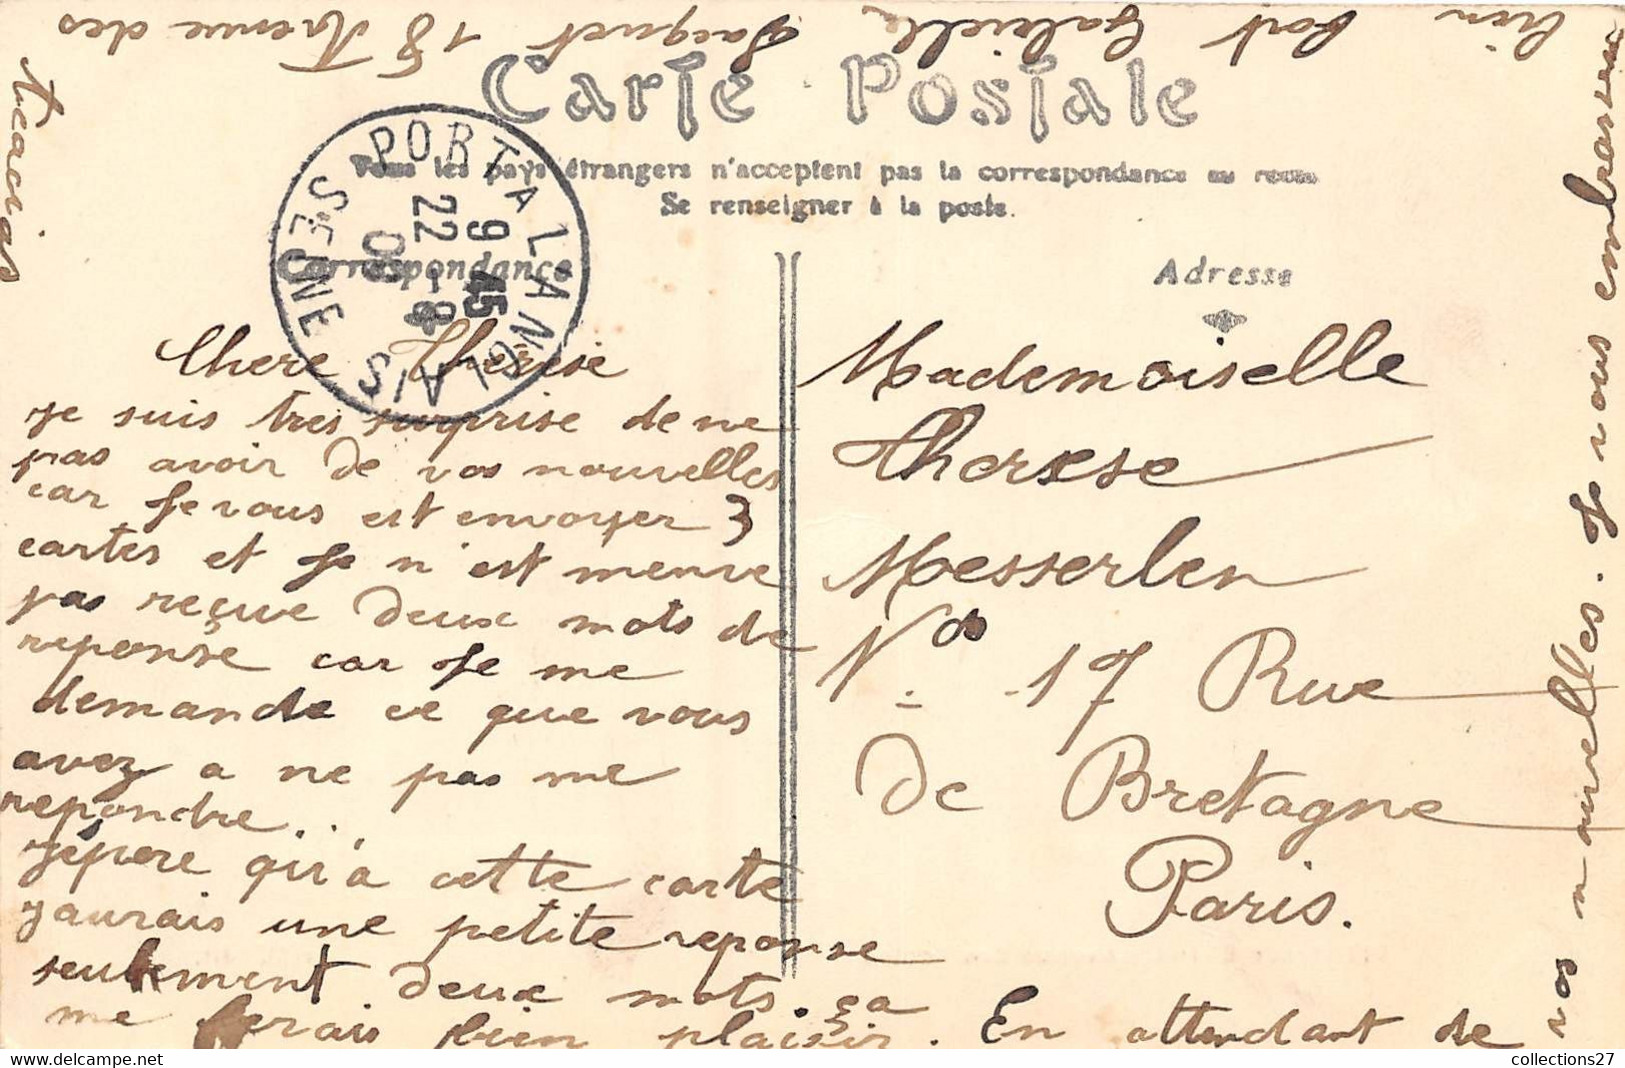 Carte Postale
Tous les pays étrangers n'acceptent pas la correspondance au recto
Se renseigner à la poste.
Correspondance
Adresse
PORT A L'ANGLAIS
SEINE
9 45
22 - 8
09
Chere Thérèse
je suis tres surprise de ne
pas avoir de vos nouvelles
car Je vous est envoyer 3
cartes et Je n'est meme
pas reçue deux mots de
reponse car Je me
demande ce que vous
avez a ne pas me
repondre...
J'épere qu'a cette carte
j'aurais une petite reponse
seulement deux mots. ça
me ferais bien plaisir. En attendant de
vos nouvelles. Je vous embrasse
bien fort Gabrielle Jacquet 18 Avenue des
Acacias
Mademoiselle
Therese
Messerlen
No 17 Rue
De Bretagne
Paris.
collections27